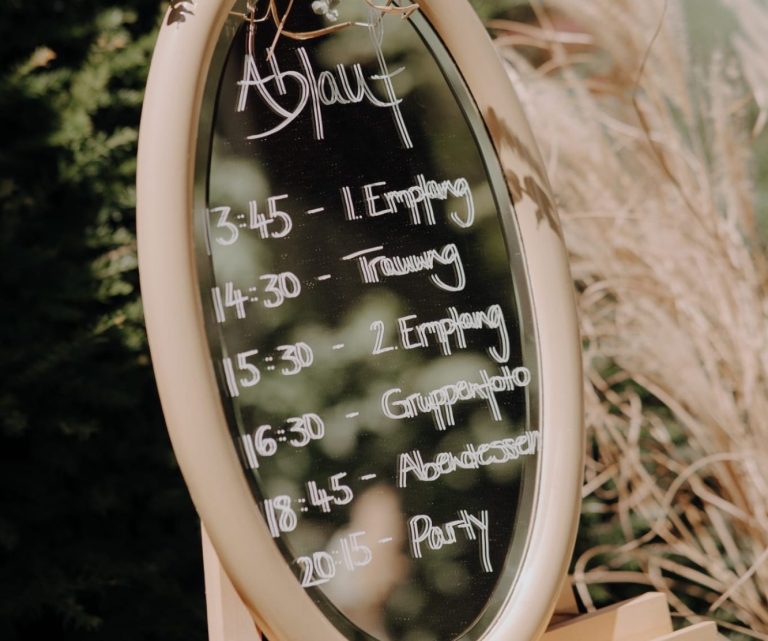 Ablauf
13:45 - 1. Empfang
14:30 - Trauung
15:30 - 2. Empfang
16:30 - Gruppenfoto
18:45 - Abendessen
20:15 - Party